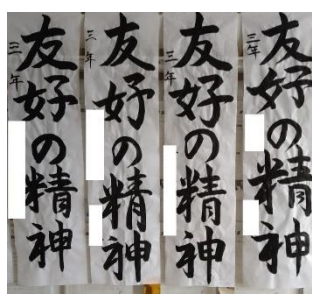 友好の精神
三年
友好の精神
三年
友好の精神
三年
友好の精神
三年